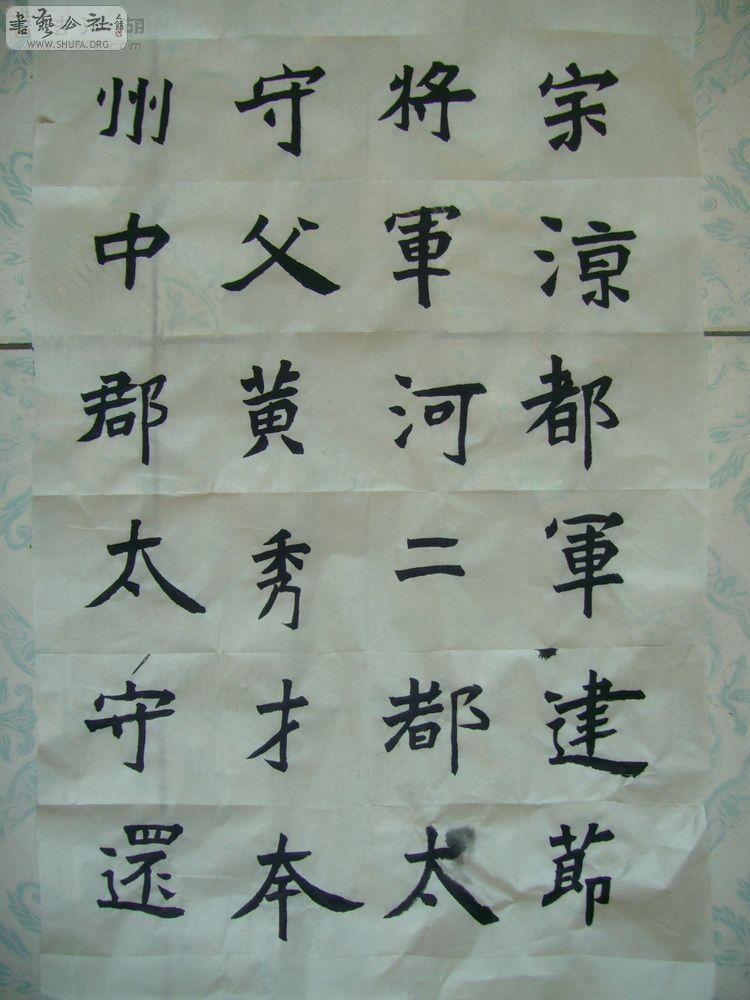 宗涼都軍建節
將軍河二都太
守父黄秀才本
州中郡太守還
書藝公社
WWW.SHUFA.ORG
胡